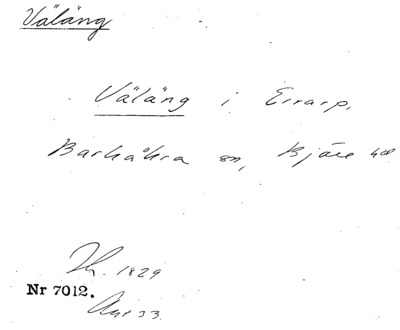 Väläng
Väläng i Errarp,
Barkåkra sn, Bjäre hd
1829
Nr 7012.
33